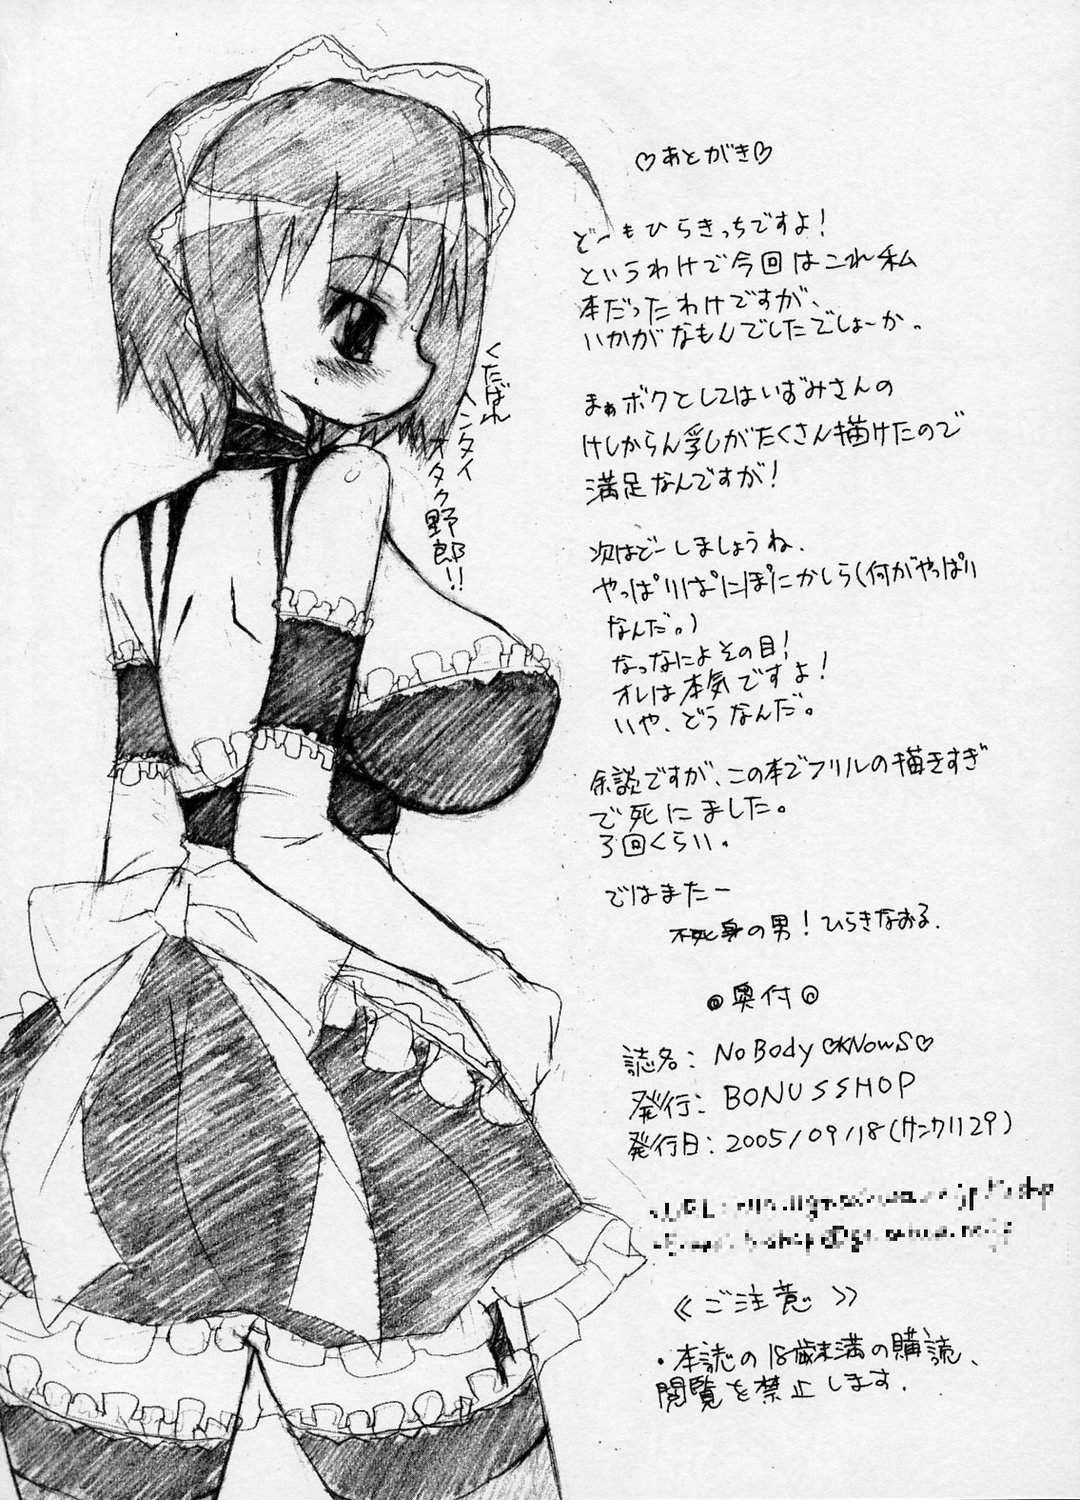 ♡あとがき♡
どーもひらきっちですよ!
というわけで今回はこれ私
本だったわけですが、
いかがなもんでしたでしょーか。
まぁボクとしてはいずみさんの
けしからん乳しがたくさん描けたので
満足なんですが!
次はどーしましょうね、
やっぱりぱにぽにかしら(何がやっぱり
なんだ。)
なっなによその目!
オレは本気ですよ!
いや、どうなんだ。
余談ですが、この本でフリルの描きすぎ
で死にました。
3回くらい。
ではまたー
不死身の男!ひらきなおる.
くたばれ
ヘンタイ
オタク野郎!!
◎奥付◎
誌名: NoBody♡KNowS♡
発行: BONUSSHOP
発行日: 2005/09/18(サンクリ29)
《ご注意》
・本誌の18歳未満の購読、
閲覧を禁止します.